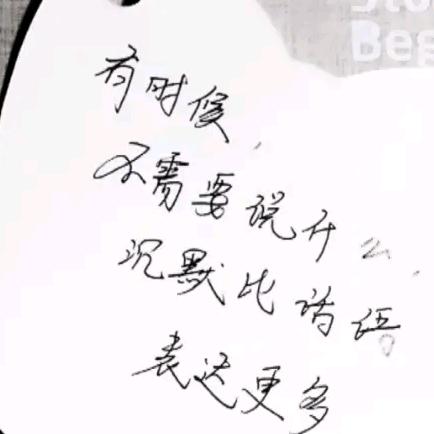 Beg
有时候
不需要说什么
沉默比话语
表达更多